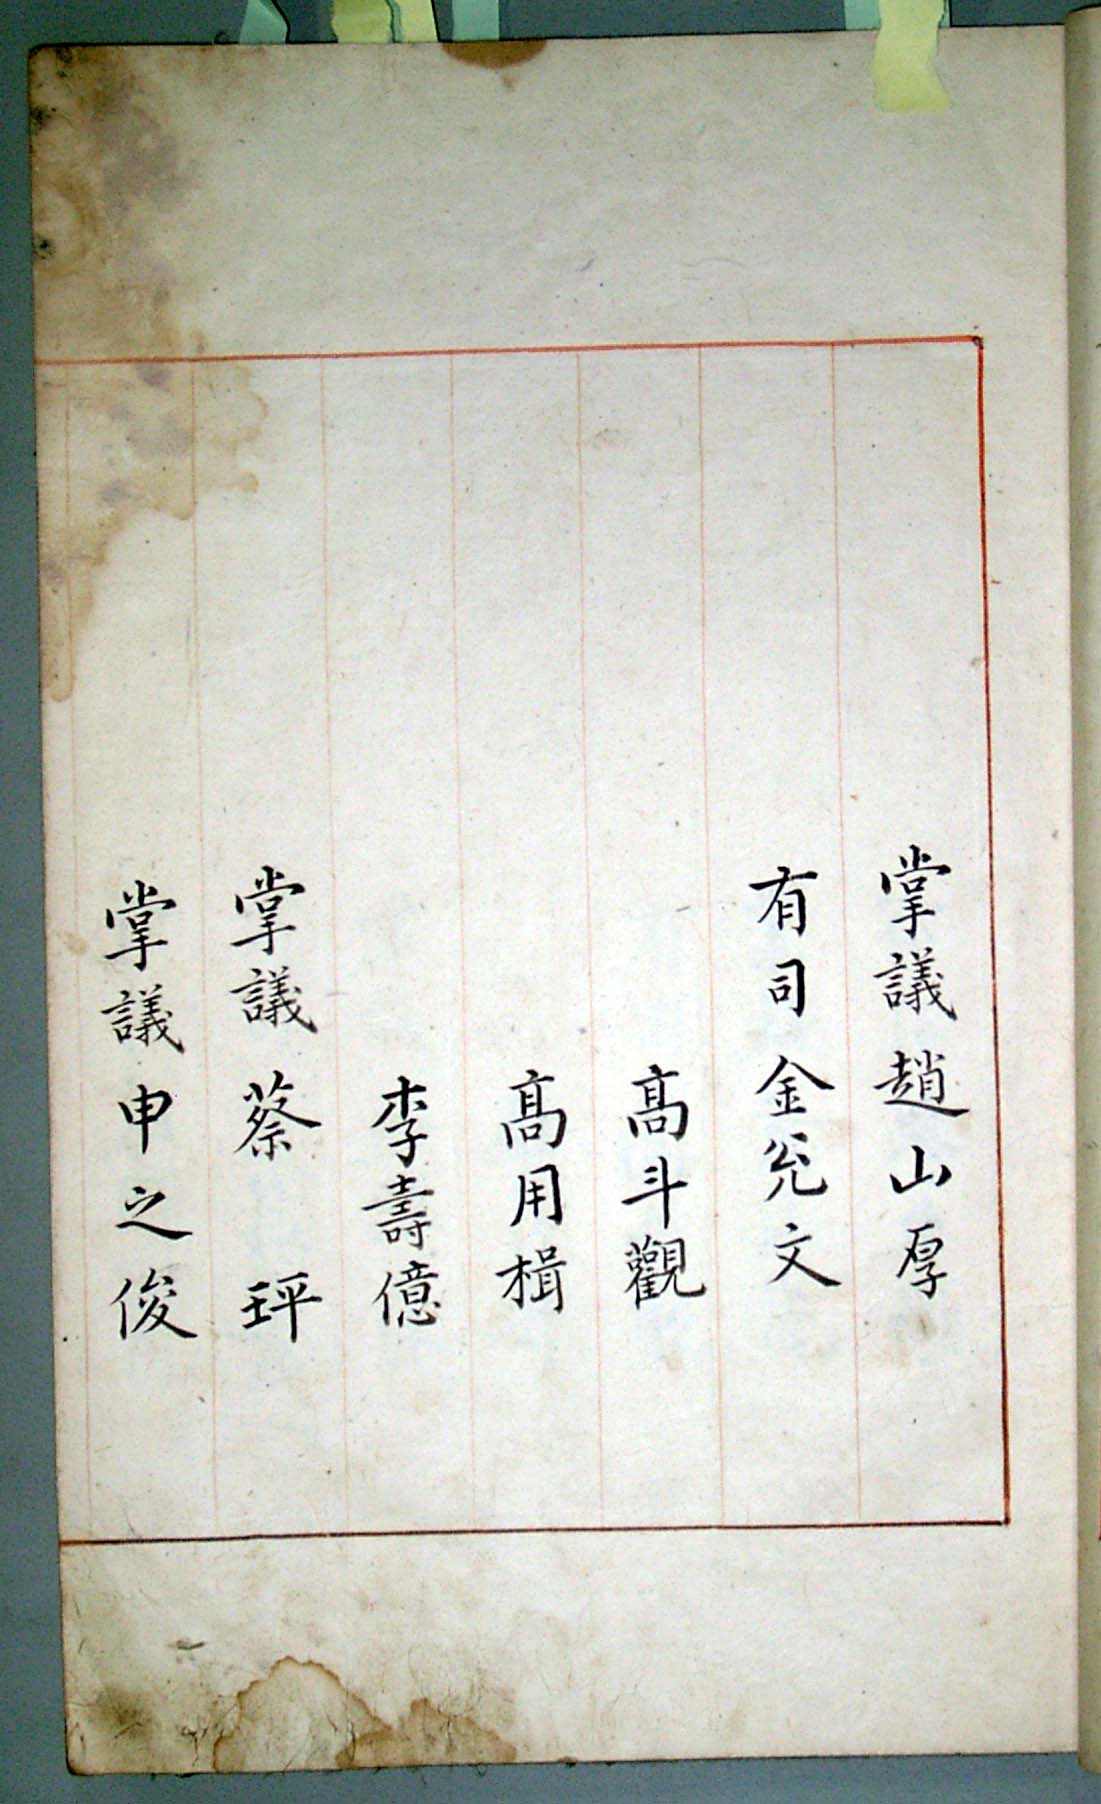 掌議趙山厚
有司金兊文
髙斗觀
髙用楫
李壽億
掌議蔡玶
掌議申之俊